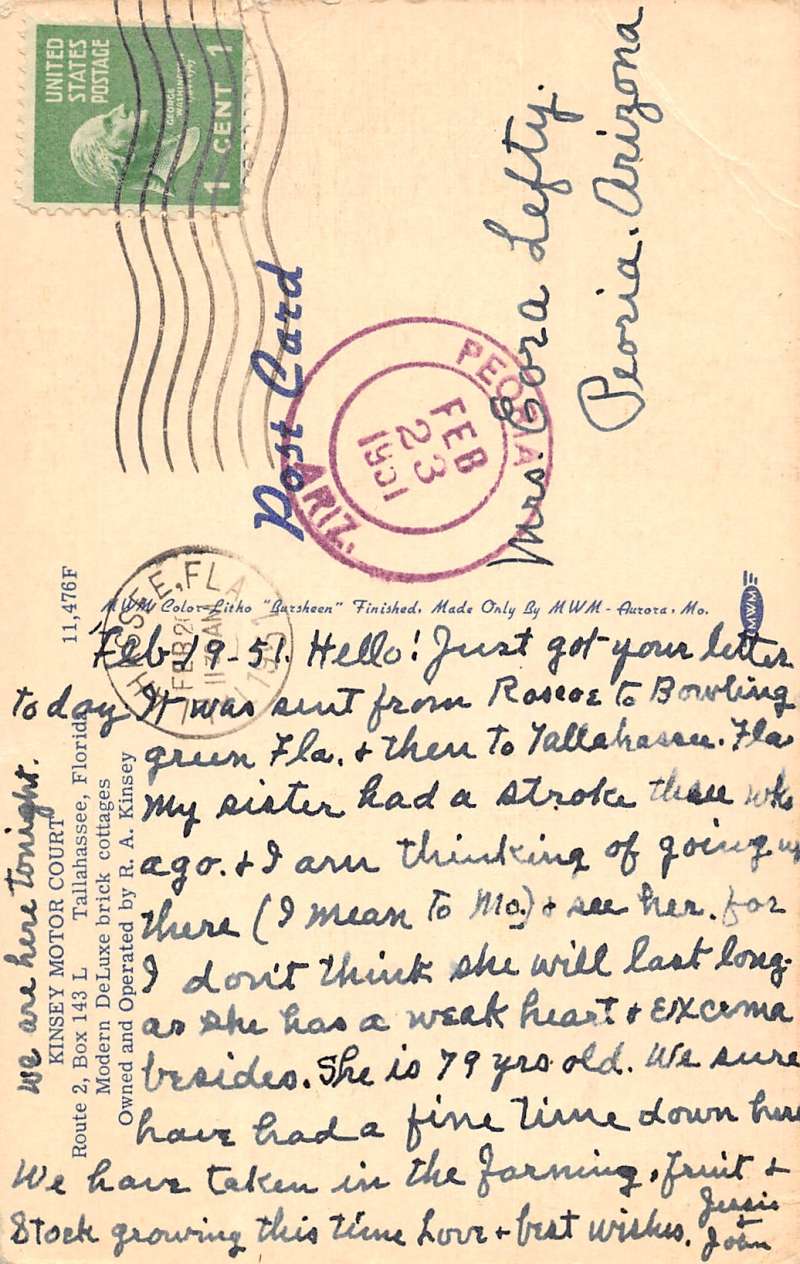 UNITED
STATES
POSTAGE
GEORGE
WASHINGTON
1 CENT 1
Post Card
PEORIA
FEB
23
1951
ARIZ.
Mrs. Cora Lefty.
Peoria. Arizona
11,476F
HASSEE, FLA
FEB 20
AM
1951
MWM Color-Litho "Bursheen" Finished, Made Only By MWM - Aurora, Mo.
MWM
Feb 19-51. Hello! Just got your letter
today It was sent from Roscoe to Bowling
green Fla. & then to Tallahassee. Fla
My sister had a stroke three wks
ago. & I am thinking of going up
there (I mean to Mo.) & see her. for
I don't think she will last long.
as she has a weak heart & excema
besides. She is 79 yrs old. We sure
have had a fine time down here
We have taken in the farming, fruit &
Stock growing this time Love & best wishes.
Jessie
& John
we are here tonight.
KINSEY MOTOR COURT
Route 2, Box 143 L Tallahassee, Florida
Modern DeLuxe brick cottages
Owned and Operated by R. A. Kinsey